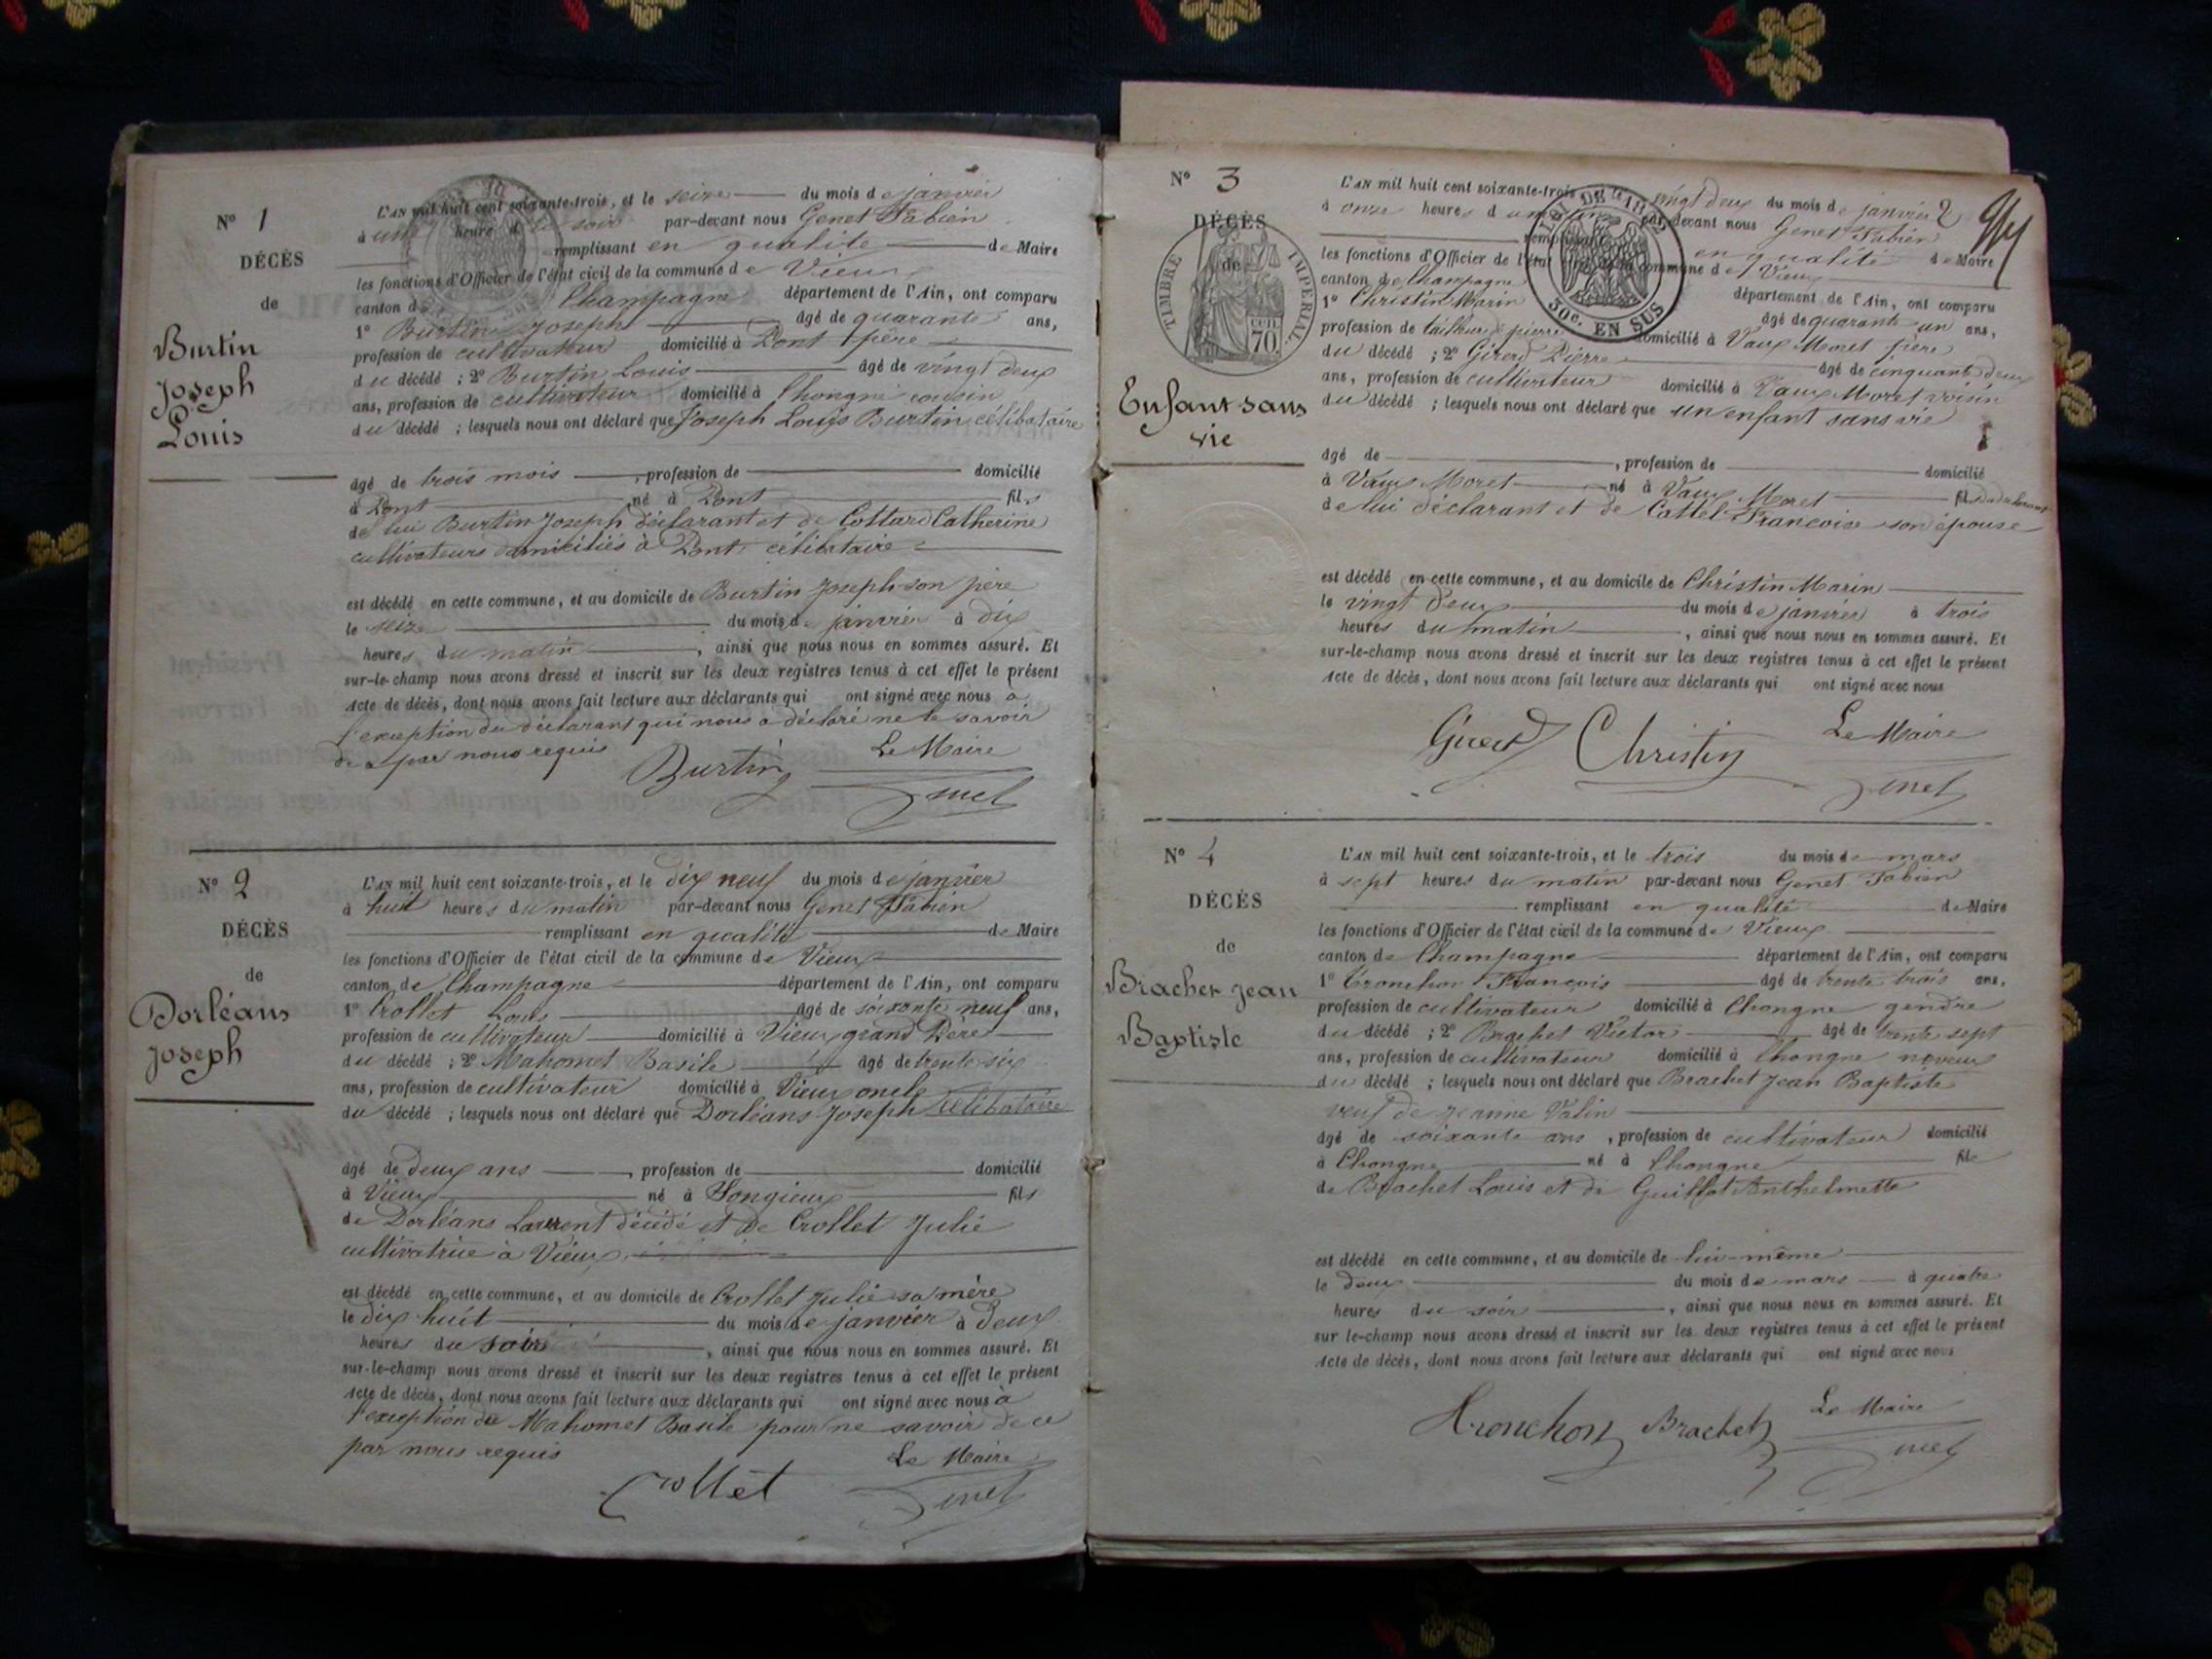 N° 1
DÉCÈS
de
Burtin
Joseph
Louis
L'AN mil huit cent soixante-trois, et le seize du mois de janvier
à une heure du soir par-devant nous Genet Fabien
remplissant en qualité de Maire
les fonctions d'Officier de l'état civil de la commune de Vieux
canton de Champagne département de l'Ain, ont comparu
1° Burtin Joseph âgé de quarante ans,
profession de cultivateur domicilié à Pont père
du décédé ; 2° Burtin Louis âgé de vingt deux
ans, profession de cultivateur domicilié à Chongne cousin
du décédé ; lesquels nous ont déclaré que Joseph Louis Burtin célibataire
âgé de trois mois , profession de domicilié
à Pont né à Pont fils
de lui Burtin Joseph déclarant et de Cottard Catherine
cultivateurs domiciliés à Pont célibataire
est décédé en cette commune, et au domicile de Burtin Joseph son père
le seize du mois de janvier à dix
heures du matin , ainsi que nous nous en sommes assuré. Et
sur-le-champ nous avons dressé et inscrit sur les deux registres tenus à cet effet le présent
Acte de décès, dont nous avons fait lecture aux déclarants qui ont signé avec nous à
l'exception du déclarant qui nous a déclaré ne le savoir
de ce par nous requis
Le Maire
Burtin
Genet
N° 2
DÉCÈS
de
Dorléans
Joseph
L'AN mil huit cent soixante-trois, et le dix neuf du mois de janvier
à huit heures du matin par-devant nous Genet Fabien
remplissant en qualité de Maire
les fonctions d'Officier de l'état civil de la commune de Vieux
canton de Champagne département de l'Ain, ont comparu
1° Crollet Louis âgé de soixante neuf ans,
profession de cultivateur domicilié à Vieux grand Père
du décédé ; 2° Mahomet Basile âgé de trente six
ans, profession de cultivateur domicilié à Vieux oncle
du décédé ; lesquels nous ont déclaré que Dorléans Joseph célibataire
âgé de deux ans , profession de domicilié
à Vieux né à Songieux fils
de Dorléans Laurent décédé et de Crollet Julie
cultivatrice à Vieux
est décédé en cette commune, et au domicile de Crollet Julie sa mère
le dix huit du mois de janvier à deux
heures du soir , ainsi que nous nous en sommes assuré. Et
sur-le-champ nous avons dressé et inscrit sur les deux registres tenus à cet effet le présent
Acte de décès, dont nous avons fait lecture aux déclarants qui ont signé avec nous à
l'exception de Mahomet Basile pour ne savoir de ce
par nous requis
Le Maire
Crollet
Genet
N° 3
DÉCÈS
de
TIMBRE IMPÉRIAL
CEN. 70.
Enfant sans
vie
2
30c. EN SUS
L'AN mil huit cent soixante-trois vingt deux du mois de janvier
à onze heures du par-devant nous Genet Fabien
remplissant en qualité de Maire
les fonctions d'Officier de l'état civil de la commune de Vieux
canton de Champagne département de l'Ain, ont comparu
1° Christin Marin âgé de quarante un ans,
profession de tailleur de pierre domicilié à Vaux Moret père
du décédé ; 2° Girerd Pierre âgé de cinquante deux
ans, profession de cultivateur domicilié à Vaux Moret voisin
du décédé ; lesquels nous ont déclaré que un enfant sans vie
âgé de , profession de domicilié
à Vaux Moret né à Vaux Moret fils
de lui déclarant et de Cottel Françoise son épouse
est décédé en cette commune, et au domicile de Christin Marin
le vingt deux du mois de janvier à trois
heures du matin , ainsi que nous nous en sommes assuré. Et
sur-le-champ nous avons dressé et inscrit sur les deux registres tenus à cet effet le présent
Acte de décès, dont nous avons fait lecture aux déclarants qui ont signé avec nous
Le Maire
Girerd Christin
Genet
N° 4
DÉCÈS
de
Brachet Jean
Baptiste
L'AN mil huit cent soixante-trois, et le trois du mois de mars
à sept heures du matin par-devant nous Genet Fabien
remplissant en qualité de Maire
les fonctions d'Officier de l'état civil de la commune de Vieux
canton de Champagne département de l'Ain, ont comparu
1° Tronchon François âgé de trente trois ans,
profession de cultivateur domicilié à Chongne gendre
du décédé ; 2° Brachet Victor âgé de trente sept
ans, profession de cultivateur domicilié à Chongne neveux
du décédé ; lesquels nous ont déclaré que Brachet Jean Baptiste
veuf de Jeanne Valin
âgé de soixante ans , profession de cultivateur domicilié
à Chongne né à Chongne fils
de Brachet Louis et de Guillot Anthelmette
est décédé en cette commune, et au domicile de lui-même
le deux du mois de mars à quatre
heures du soir , ainsi que nous nous en sommes assuré. Et
sur le-champ nous avons dressé et inscrit sur les deux registres tenus à cet effet le présent
Acte de décès, dont nous avons fait lecture aux déclarants qui ont signé avec nous
Le Maire
Tronchon Brachet
Genet